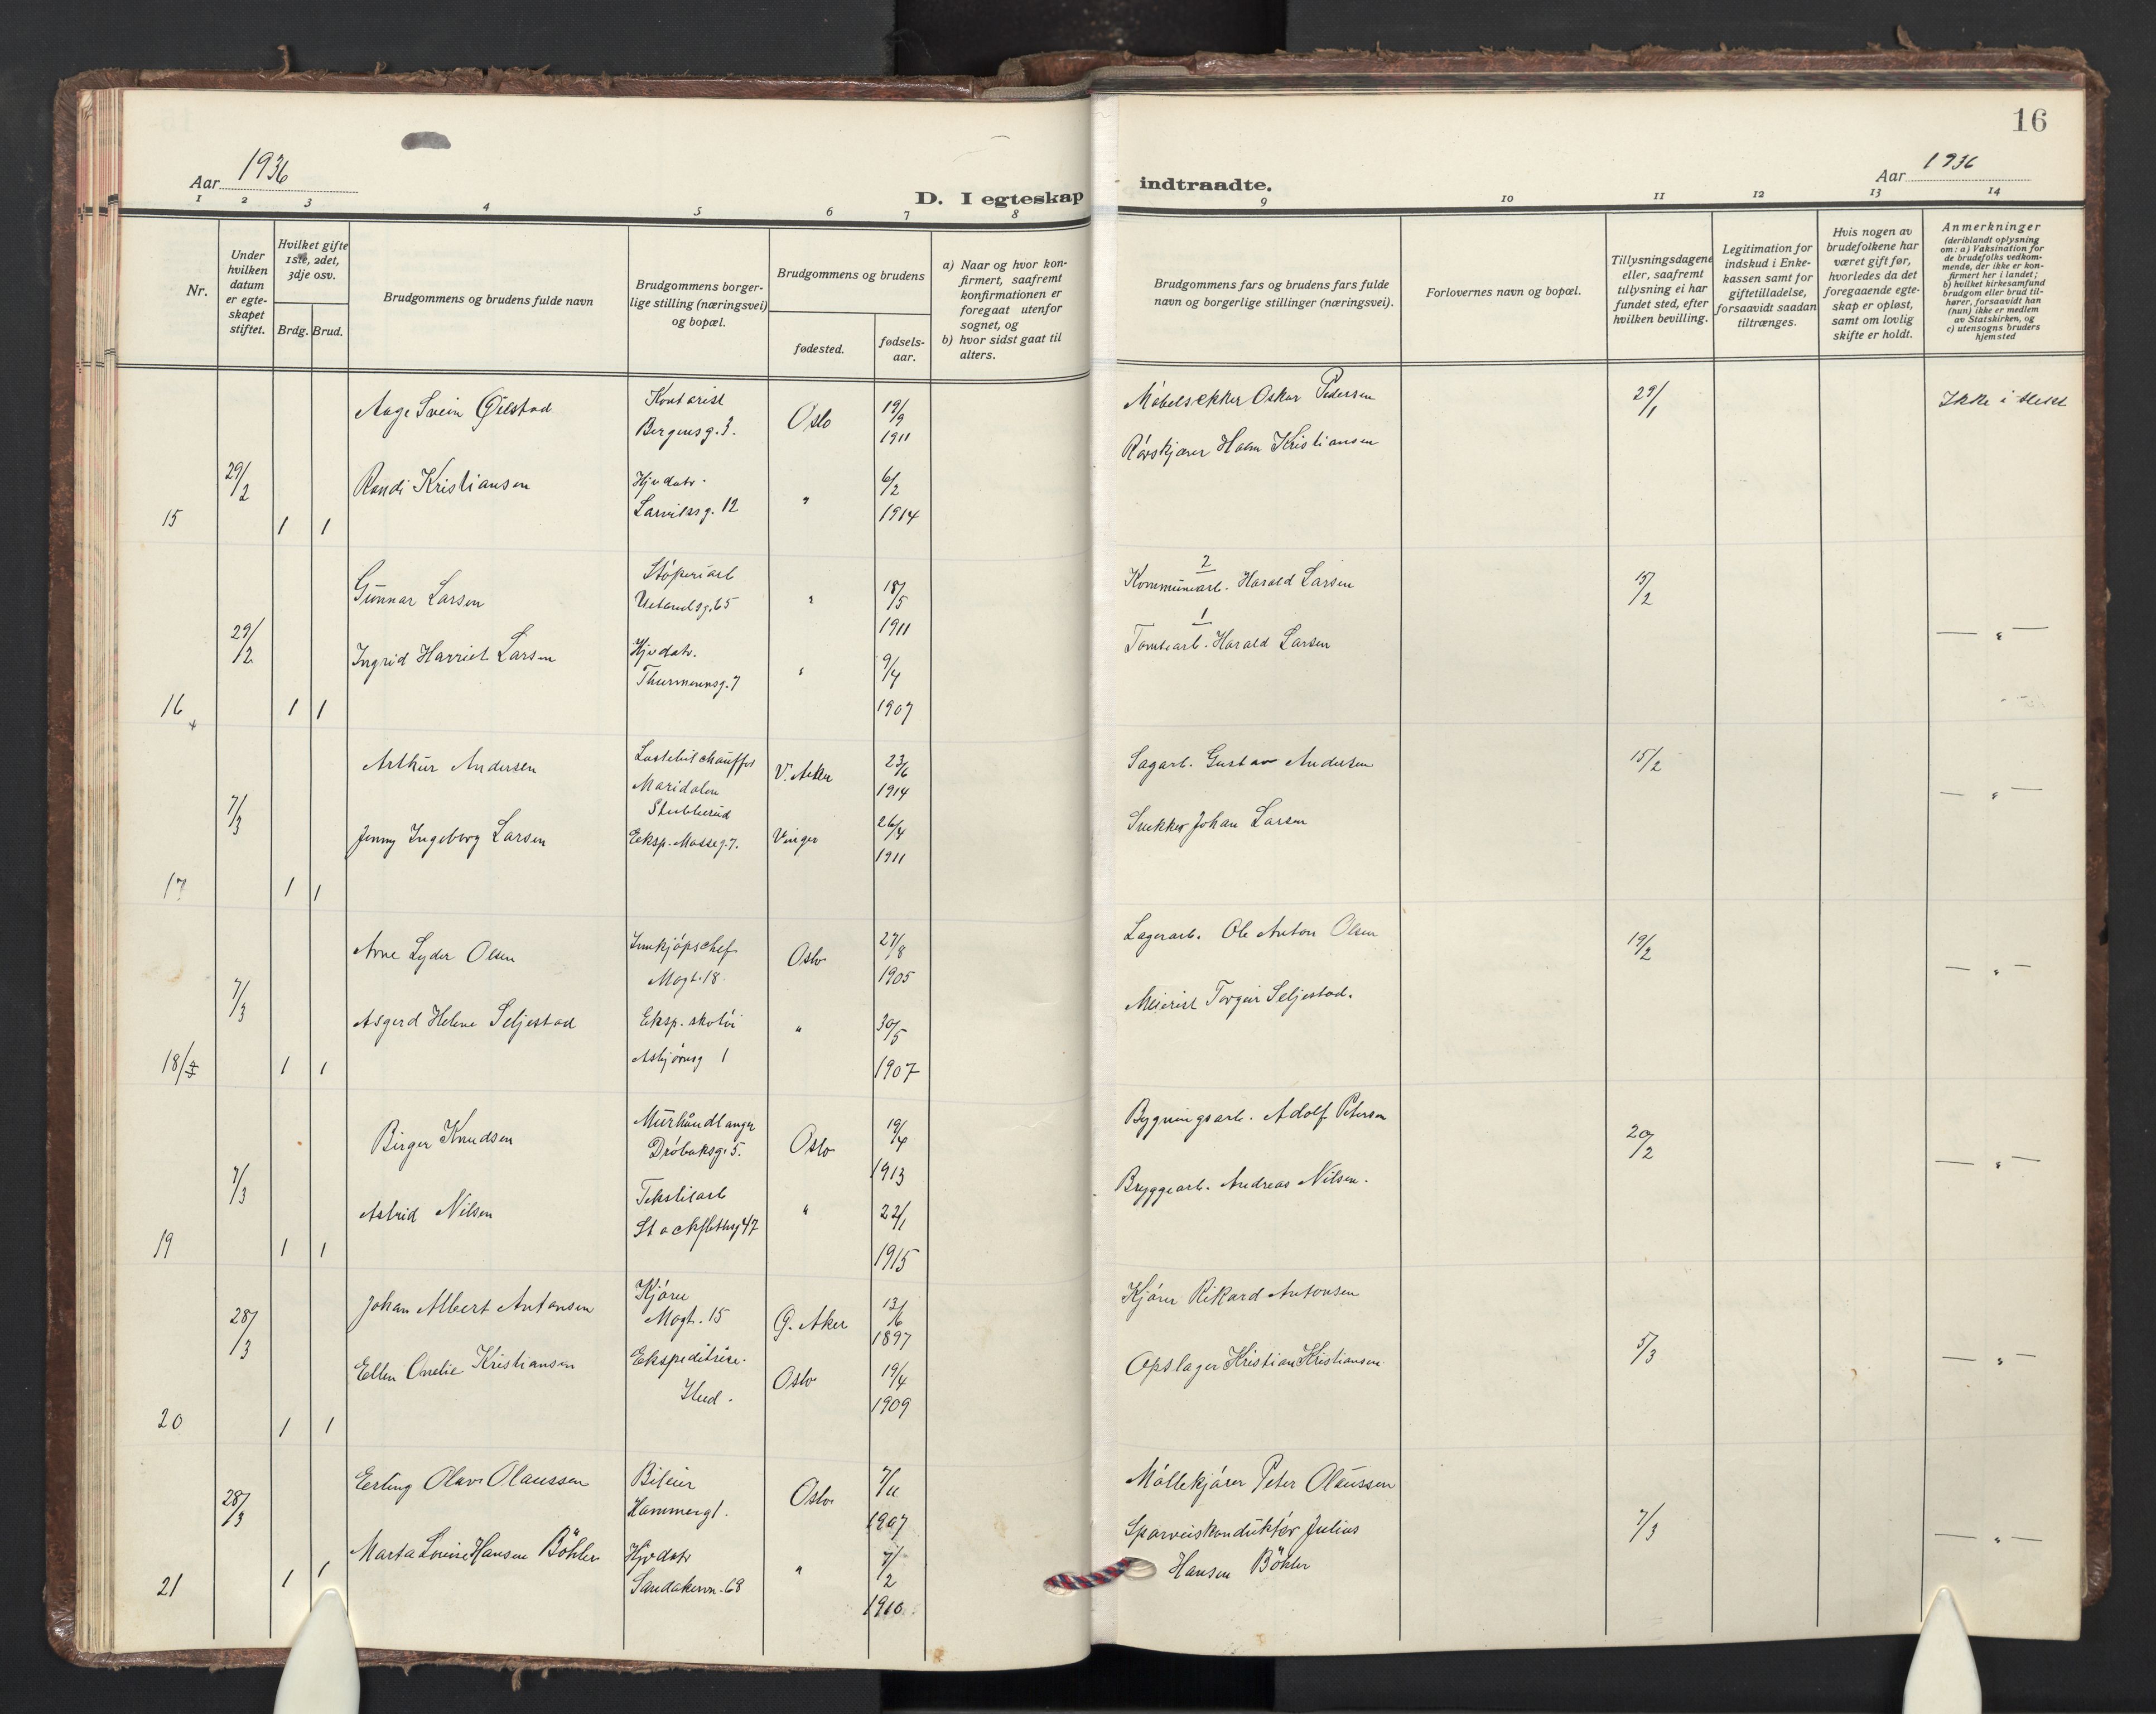 16
Aar 1936
D. I egteskap indtraadte.
Aar 1936
1 2 3 4 5 6 7 8 9 10 11 12 13 14
Nr.
Under hvilken datum er egteskapet stiftet.
Hvilket gifte 1ste, 2det, 3dje osv.
Brdg. Brud.
Brudgommens og brudens fulde navn
Brudgommens borgerlige stilling (næringsvei) og bopæl.
Brudgommens og brudens
fødested.
fødselsaar.
a) Naar og hvor konfirmert, saafremt konfirmationen er foregaat utenfor sognet, og
b) hvor sidst gaat til alters.
Brudgommens fars og brudens fars fulde navn og borgerlige stillinger (næringsvei).
Forlovernes navn og bopæl.
Tillysningsdagene eller, saafremt tillysning ei har fundet sted, efter hvilken bevilling.
Legitimation for indskud i Enkekassen samt for giftetilladelse, forsaavidt saadan tiltrænges.
Hvis nogen av brudefolkene har været gift før, hvorledes da det foregaaende egteskap er opløst, samt om lovlig skifte er holdt.
Anmerkninger
(deriblandt oplysning om: a) Vaksination for de brudefolks vedkommende, der ikke er konfirmert her i landet;
b) hvilket kirkesamfund brudgom eller brud tilhører, forsaavidt han (hun) ikke er medlem av Statskirken, og
c) utensogns bruders hjemsted
Aage Svein Gilstad Kontorist Oslo 19/9 Møbelsnekker Oskar Pedersen 29/1 Ikke i slekt
Bergensg. 3. 1911
29/2 Randi Kristiansen Hjvdatr. " 6/2 Rørskjærer Kristiansen
15 1 1 Larviksg. 12 1914
Gunnar Larsen Støperiarb " 18/5 2 Kommunearb. Harald Larsen 15/2
Uelandsg. 65 1911
29/2 Ingrid Harriet Larsen Hjvdatr. " 9/4 1 Tomtearb. Harald Larsen — " —
16 1 1 Thurmannsg. 7 1907
Arthur Andersen Lastebilchauffør V. Aker 23/6 Sagarb. Gustav Andersen 15/2
Maridalen 1914 — " —
7/3 Stubberud
Jenny Ingeborg Larsen Eksp. Mosseg. 7. Vinger 26/4 Snekker Johan Larsen
17 1 1 1911
Arne Lyder Olsen Innkjøpschef Oslo 27/8 Lagerarb. Ole Anton Olsen 19/2
Mogt. 18. 1905 — " —
7/3 Asgerd Helene Seljestad Eksp. skotøi " 30/5 Meierist Torgeir Seljestad.
18 1 1 Asbjørnsg 1 1907
Birger Knudsen Murhåndlanger Oslo 19/4 Bygningsarb. Adolf Petersen 20/2
Drøbaksg. 5. 1913 — " —
7/3 Astrid Nilsen Tekstilarb " 22/1 Bryggearb. Andreas Nilsen.
19 1 1 Stockflethsg 47 1915
Johan Albert Antonsen Kjører G. Aker 13/6 Kjører Rikard Antonsen
28/3 Mogt. 15 1897 5/3
Ellen Onelie Kristiansen Ekspeditrise. Oslo 19/4 Opslager Kristian Kristiansen — " —
20 1 1 1909
Erling Olav Olaussen Bileier Oslo 7/11 Møllekjører Peter Olaussen
28/3 Hammergt. 1907 7/3
Marta Lovise Hansen Böhler Hjvdatr " 7/2 Sporveiskonduktør Julius — " —
21 1 1 Sandakervn. 68 1910. Hansen Böhler